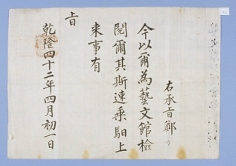 右承旨鄭
今以爾爲藝文館檢
閱爾其斯速乘馹上
來事有
旨
乾隆四十二年四月初一日